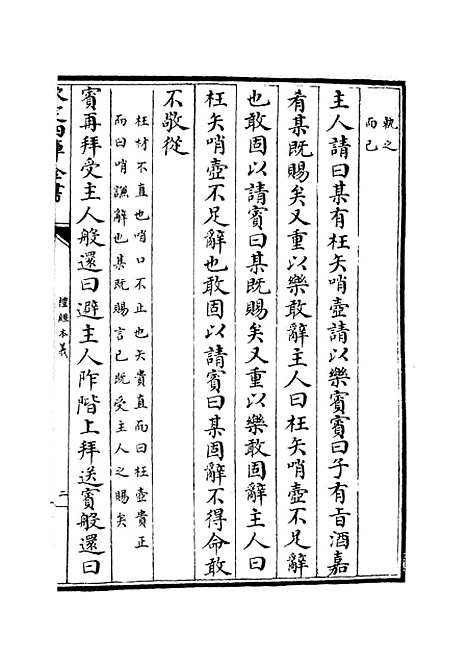 執之
而已
主人請曰某有枉矢哨壺請以樂賓賓曰子有㫖酒嘉
肴某既賜矣又重以樂敢辭主人曰枉矢哨壺不足辭
也敢固以請賓曰某既賜矣又重以樂敢固辭主人曰
枉矢哨壺不足辭也敢固以請賓曰某固辭不得命敢
不敬從
枉材不直也哨口不正也矢貴直而曰枉壺貴正
而曰哨謙辭也某既賜言已既受主人之賜矣
賓再拜受主人般還曰避主人阼階上拜送賓般還曰
欽定四庫全書
禮經本義
二